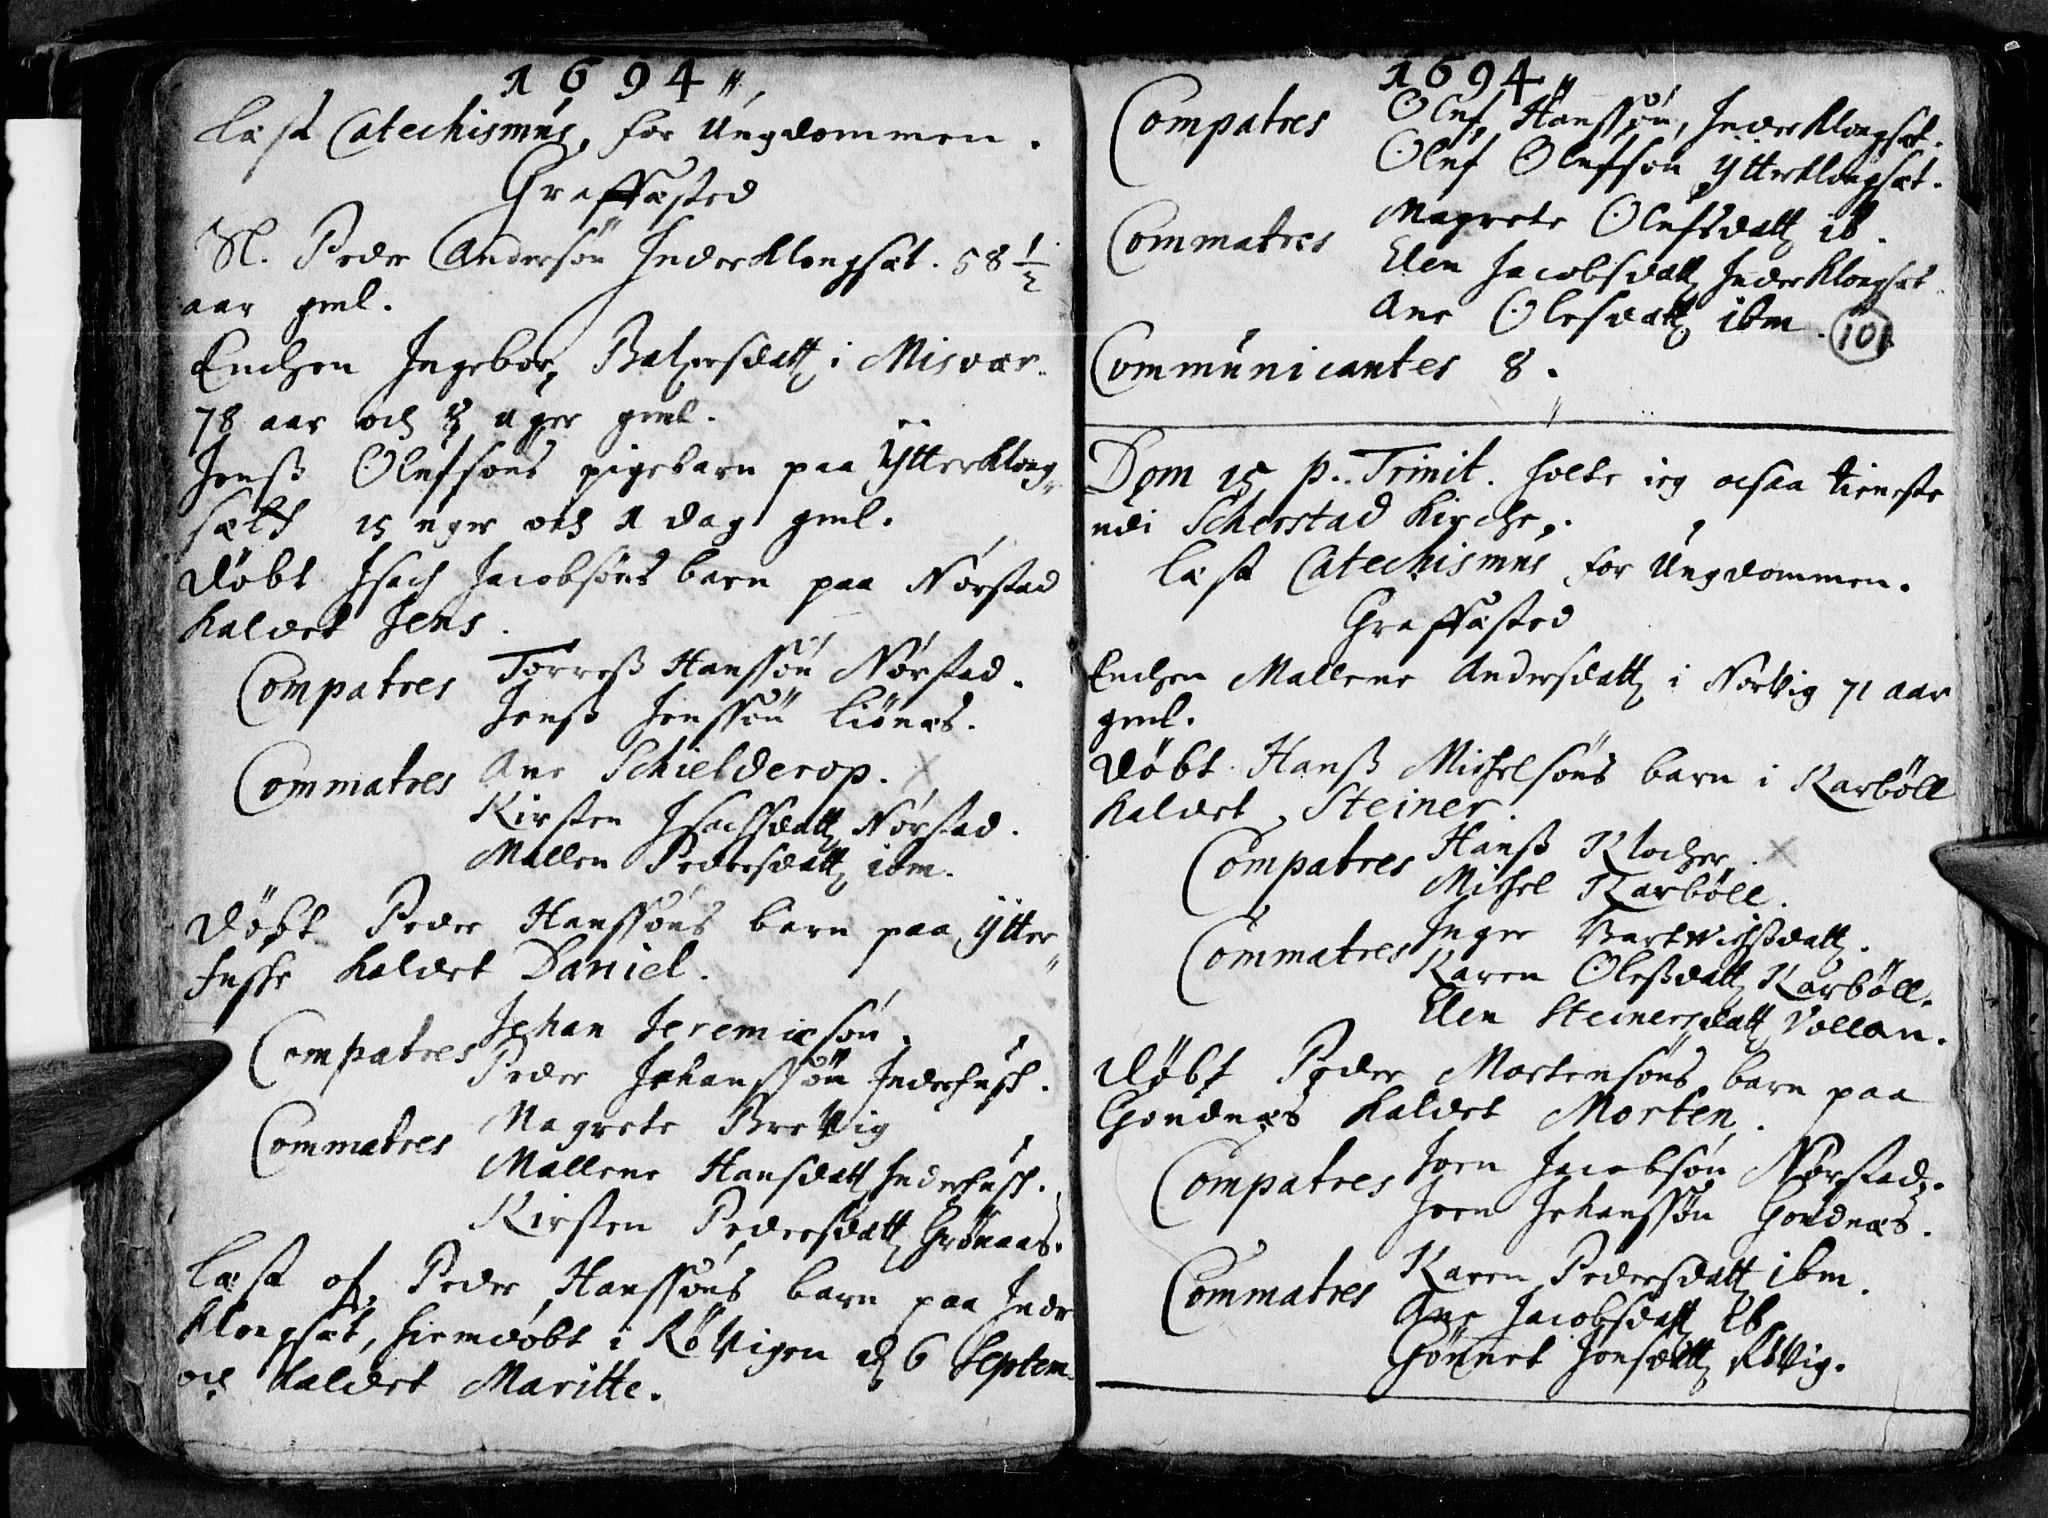 1694
læst Catechismus, for Ungdommen.
Graffæsted
Sl. Peder Andersøn Inderklongsæt. 58 1/2
aar gml.
Enchen Ingebor, Baltzersdatt i Misvær.
78 aar och 3 uger gml.
Jenß Olufsøns pigebarn paa Ytterklong-
sætt 15 uger och 1 dag gml.
Døbt Isach Jacobsøns barn paa Nørstad
kaldet Jens.
Compatres Torreß Hanssøn Nørstad.
Jenß Jenssøn Liønæs.
Commatres Ane Schielderop.
Kirsten Isachsdatt Nørstad.
Mallen Pedersdatt ibm.
Døbt Peder Hanssøns barn paa Ytter-
fuske kaldet Daniel.
Compatres Johan Jeremiæsøn.
Peder Johanssøn Inderfusk.
Commatres Magrete Brevig
Mallene Hansdatt Inderfusk.
Kirsten Pedersdatt Grønaas.
Læst of, Peder Hanssøns barn paa Inder
klongsæt, hiemdøbt i Røvigen d 6 Septem.
och kaldet Maritte.
1694
Compatres Oluf Hanssøn, Inderklongsæt.
Oluf Olufsøn Ytterklongsæt.
Commatres Magrete Olufsdatt ib.
Elen Jacobsdatt Inderklongsæt
Ane Olesdatt ibm.
101
Communicantes 8.
Dom 15 p. Trinit. holte ieg ocsaa tieneste
udi Scherstad Kirche.
læst Catechismus for Ungdommen.
Graffæsted
Enchen Mallene Andersdatt i Norvig 71 aar
gml.
Døbt Hanß Michelsøns barn i Karbøll
kaldet Steiner.
Compatres Hanß Klocher.
Michel Karbøll.
Commatres Inger Hartvichßdatt.
Karen Oleßdatt Karbøll.
Elen Steinersdatt Vollan.
Døbt Peder Mortensøns barn paa
Godnæs kaldet Morten.
Compatres Joen Jacobsøn Nørstad.
Joen Johanssøn Godnæs.
Commatres Karen Pedersdatt ibm.
Ane Jacobsdatt ib
Gønnet Jonsdatt Røvig.